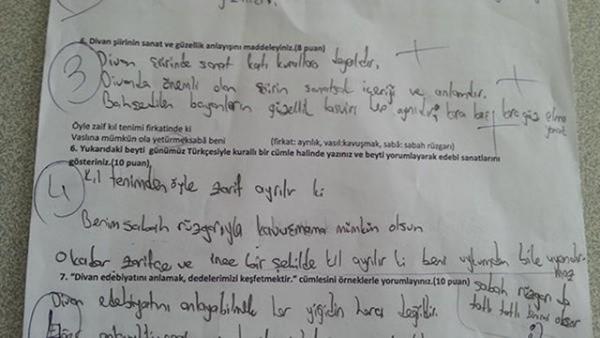 6. Divan şiirinin sanat ve güzellik anlayışını maddeleyiniz.(8 puan)
3
Divan şiirinde sanat katı kurallara dayalıdır.
Divanda önemli olan şiirin sanatsal içeriği ve anlamıdır.
Bahsedilen bayanların güzellik tasviri hep aynıdır; kara kaş, kara göz elma yanak
Öyle zaif kıl tenimi firkatinde ki
Vaslına mümkün ola yetürmek sabâ beni (firkat: ayrılık, vasıl:kavuşmak, sabâ: sabah rüzgarı)
6. Yukarıdaki beyti günümüz Türkçesiyle kurallı bir cümle halinde yazınız ve beyti yorumlayarak edebi sanatlarını
gösteriniz.(10 puan),
4
Kıl tenimden öyle zarif ayrılır ki
Benim sabah rüzgarıyla kavuşmama mümkün olsun
O kadar zarifçe ve ince bir şekilde kıl ayrılır ki beni uykumdan bile uyandırmaz
sabah rüzgarı da
tatlı tatlı
7. "Divan edebiyatını anlamak, dedelerimizi keşfetmektir." cümlesini örneklerle yorumlayınız.(10 puan)
Divan edebiyatını anlayabilmek her yiğidin harcı değildir.